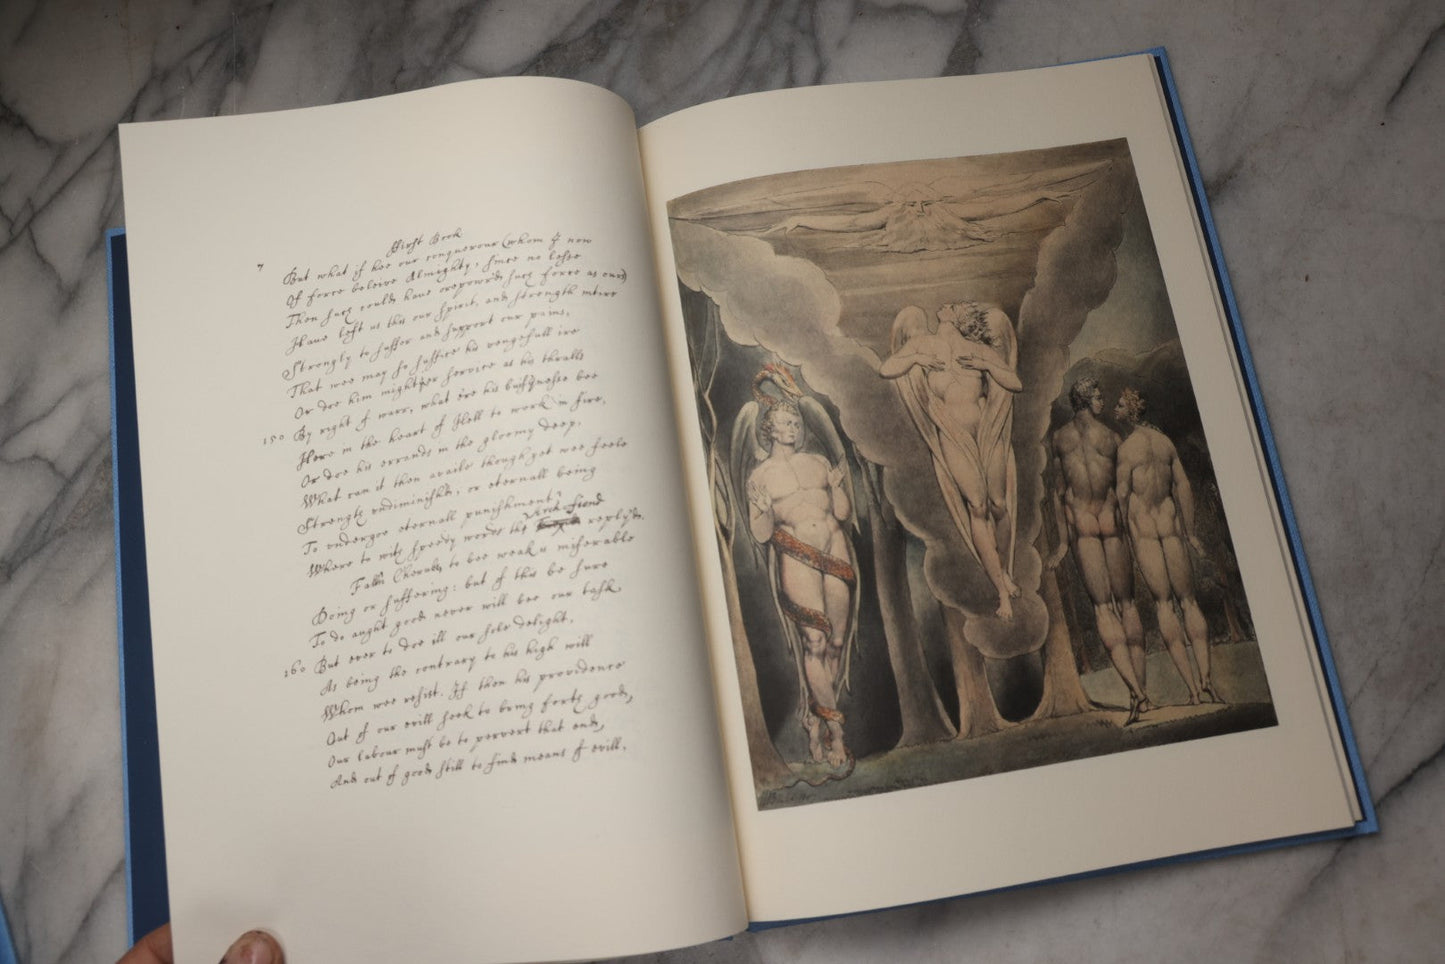 First Book
7
But what if hee our conquerour (whom I now
Of force beleive Almighty, since no lesse
Then such could have orepow'rd such force as ours)
Have left us this our spirit, and strength intire
Strongly to suffer and support our pains,
That wee may so suffice his vengefull ire
Or doe him mightier service as his thralls
150 By right of warr, what e're his buisnesse bee
Here in the heart of Hell to work in fire,
Or doe his errands in the gloomy deep.
What can it then availe though yet wee feele
Strength undiminisht, or eternall being
To undergoe eternall punishment?
Whereto with speedy words the Arch-fiend reply'd.
Fall'n Cherub, to bee weak is miserable
Doing or suffering: but of this be sure
To do aught good never will bee our task
160 But ever to doe ill our sole delight,
As being the contrary to his high will
Whom wee resist. If then his providence
Out of our evill seek to bring forth good,
Our labour must be to pervert that end,
And out of good still to find means of evill,